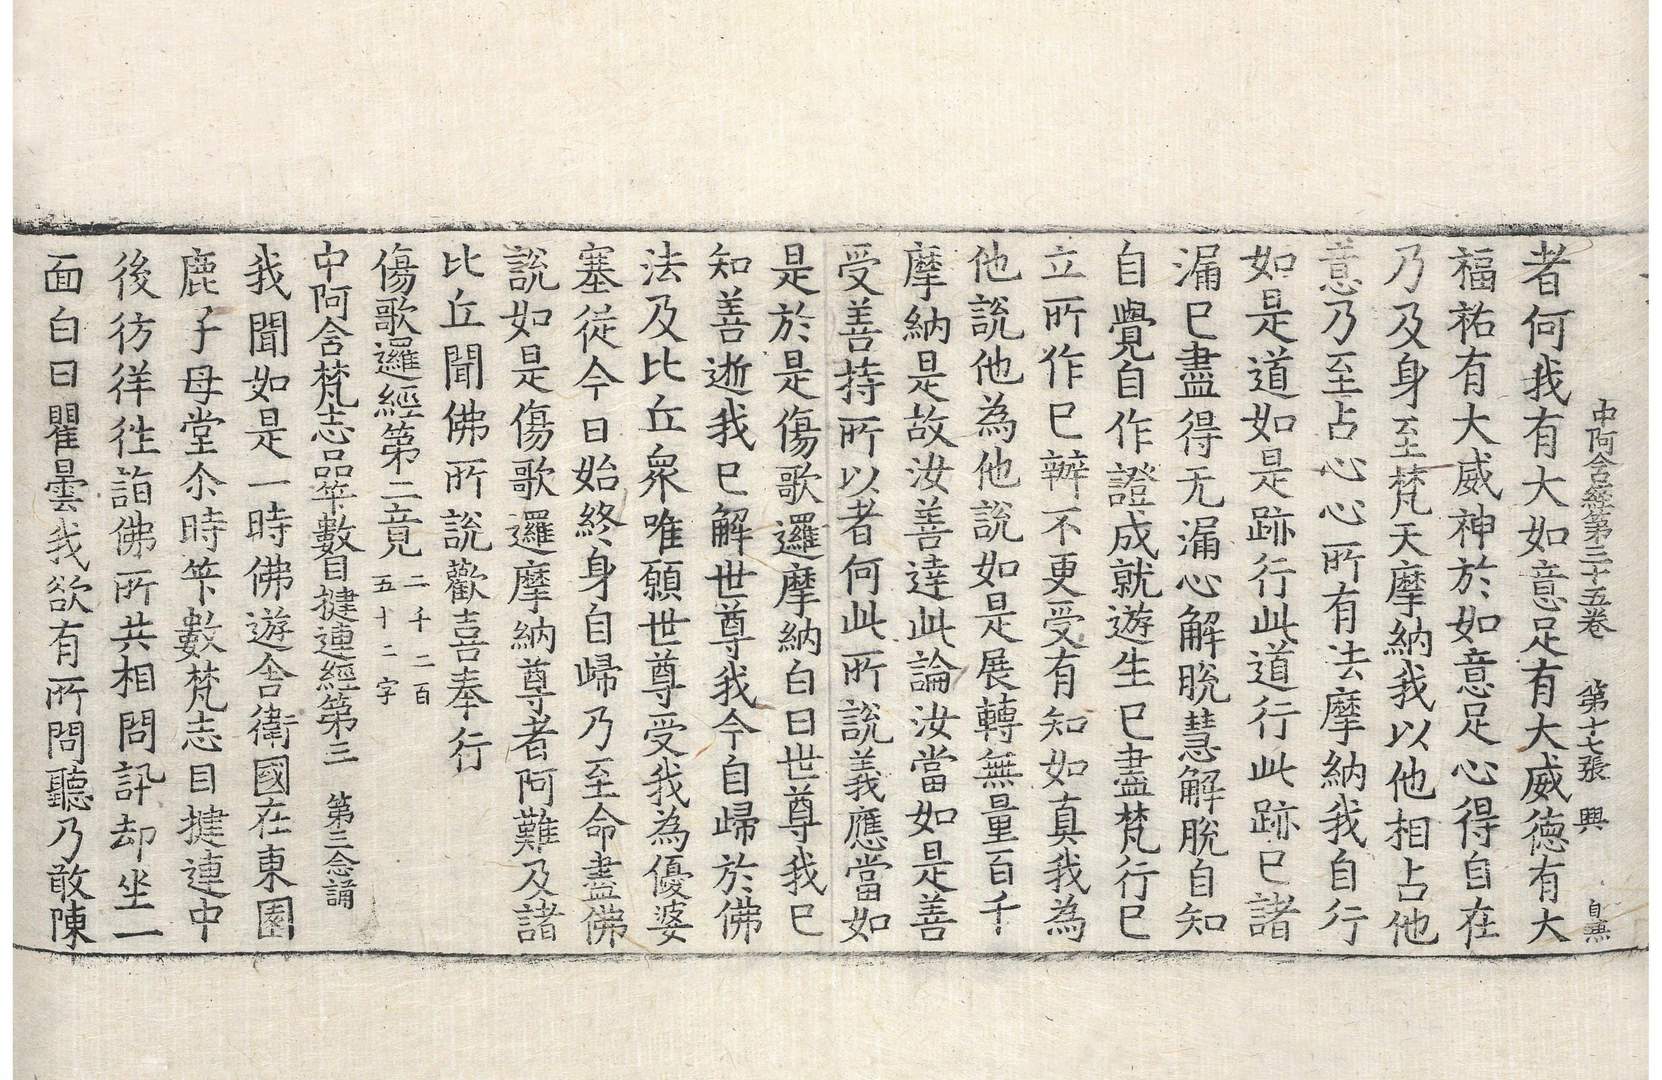 中阿含經第三十五卷 第十七張 興
者何我有大如意足有大威德有大
福祐有大威神於如意足心得自在
乃及身至梵天摩納我以他相占他
意乃至占心心所有法摩納我自行
如是道如是跡行此道行此跡已諸
漏已盡得无漏心解脫慧解脫自知
自覺自作證成就遊生已盡梵行已
立所作已辦不更受有知如真我為
他說他為他說如是展轉無量百千
摩納是故汝善逹此論汝當如是善
受善持所以者何此所說義應當如
是於是傷歌邏摩納白曰世尊我已
知善逝我已解世尊我今自歸於佛
法及比丘衆唯願世尊受我為優婆
塞從今日始終身自歸乃至命盡佛
說如是傷歌邏摩納尊者阿難及諸
比丘聞佛所說歡喜奉行
傷歌邏經第二竟 二千二百
五十二字
中阿含梵志品筭數目揵連經第三 第三念誦
我聞如是一時佛遊舍衛國在東園
鹿子母堂尒時筭數梵志目揵連中
後彷徉往詣佛所共相問訊却坐一
面白曰瞿曇我欲有所問聽乃敢陳